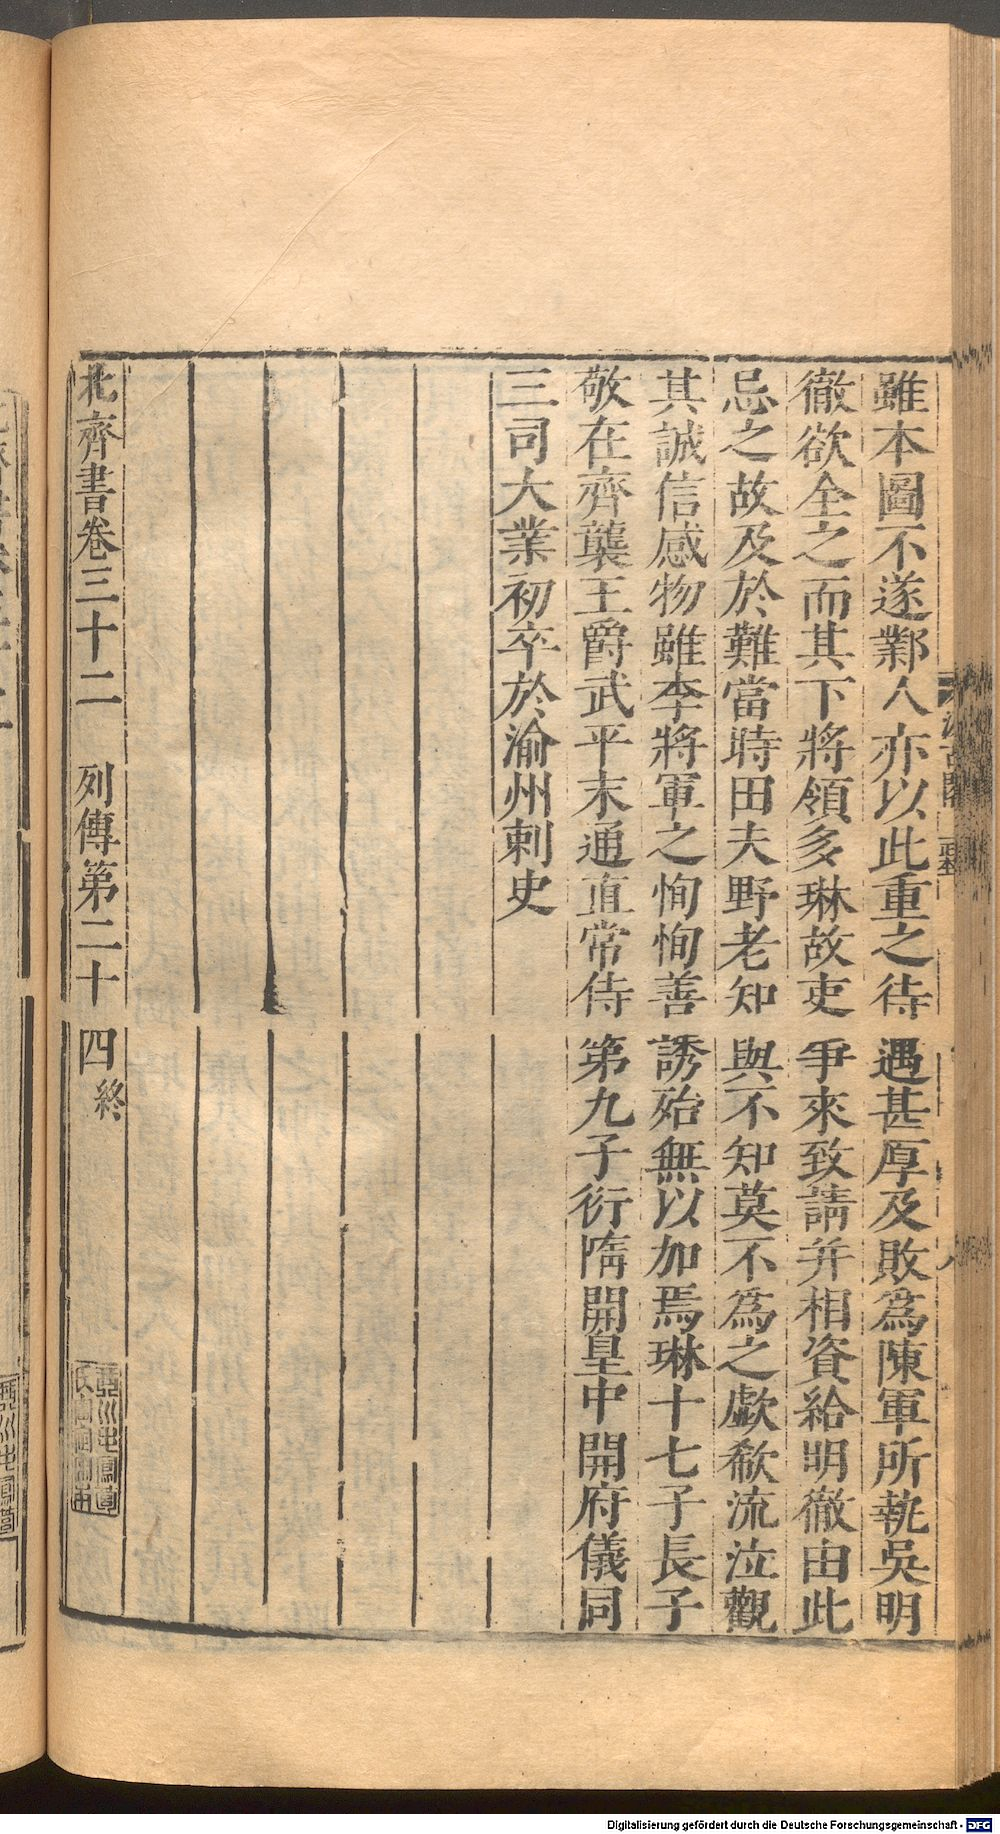 雖本圖不遂鄴人亦以此重之待遇甚厚及敗爲陳軍所執吳明
徹欲全之而其下將領多琳故吏爭來致請并相資給明徹由此
忌之故及於難當時田夫野老知與不知莫不爲之歔欷流泣觀
其誠信感物雖李將軍之恂恂善誘殆無以加焉琳十七子長子
敬在齊襲王爵武平末通直常侍第九子衍隋開皇中開府儀同
三司大業初卒於渝州刺史
北齊書卷三十二 列傳第二十四終
Digitalisierung gefördert durch die Deutsche Forschungsgemeinschaft - DFG